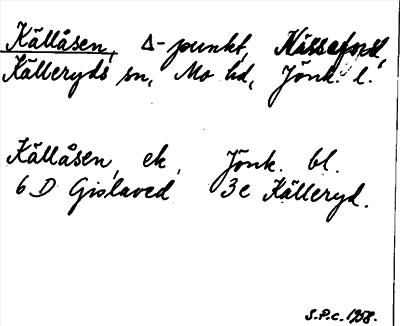 Källåsen, Δ-punkt, Nissafors,
Källeryds sn, Mo hd, Jönk. l.
Källåsen, ek, Jönk. bl.
6 D Gislaved 3e Källeryd.
S.P.C. 1958.